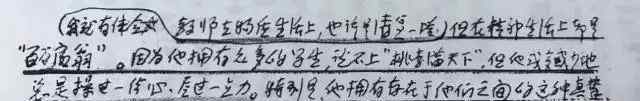 教师在物质生活上,也许是清贫一些)但在精神生活上却是
"百万富翁"。因为他拥有众多的学生,说不上"桃李满天下",但他或多或少地
总是操过一份心,尽过一点力。特别是他拥有存在于他们之间的这种真挚